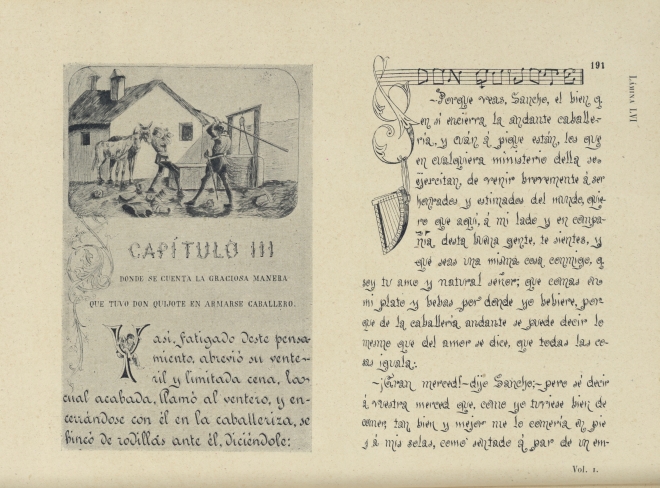 CAPÍTULO III
DONDE SE CUENTA LA GRACIOSA MANERA
QUE TUVO DON QUIJOTE EN ARMARSE CABALLERO.
Y así, fatigado deste pensa-
miento, abrevió su vente-
ril y limitada cena, la
cual acabada, llamó al ventero, y en-
cerrándose con él en la caballeriza, se
hincó de rodillas ante él, diciéndole:
191
LÁMINA LVI
DON QUIJOTE
—Porque veas, Sancho, el bien q.
en sí encierra la andante caballe-
ría, y cuán á pique están, los que
en cualquiera ministerio della se
ejercitan, de venir brevemente á ser
honrados y estimados del mundo, quie-
ro que aquí, á mi lado y en compa-
ñía desta buena gente, te sientes, y
que seas una misma cosa conmigo, q
soy tu amo y natural señor; que comas en
mi plato y bebas por donde yo bebiere, por-
que de la caballería andante se puede decir lo
mesmo que del amor se dice, que todas las co-
sas iguala.
—¡Gran merced!—dijo Sancho;—pero sé decir
á vuestra merced que, como yo tuviese bien de
comer, tan bien y mejor me lo comería en pie
y á mis solas, como sentado á par de un em-
Vol. 1.